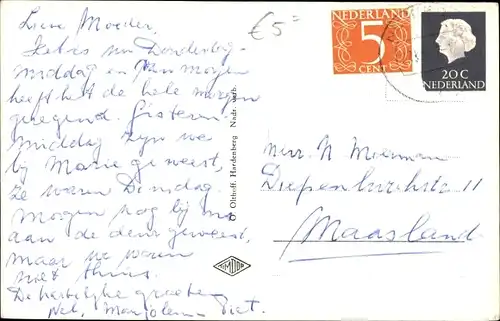 Lieve Moeder,
Het is nu Donderdag-
middag en van morgen
heeft het de hele morgen
geregend. Gisteren
middag zijn we
bij Marie geweest,
ze waren Dinsdag
morgen nog bij ons
aan de deur geweest,
maar we waren
niet thuis.
De hartelijke groeten
Nel, Marjolein Piet.
€5=
© Olthoff. Hardenberg Nadr. verb.
MIMOSA
NEDERLAND
5
CENT
20 C
NEDERLAND
N
11
Maasland